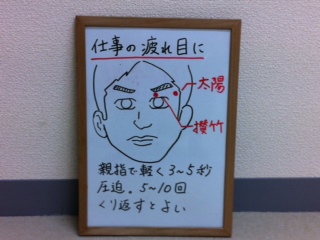 仕事の疲れ目に
太陽
攅竹
親指で軽く3〜5秒
圧迫。5〜10回
くり返すとよい